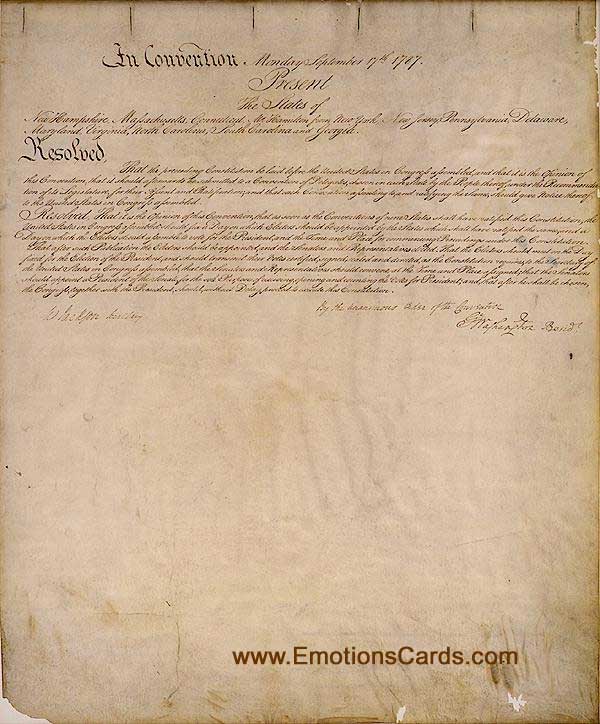 In Convention. Monday September 17th 1787.
Present
The States of
New Hampshire, Massachusetts, Connecticut, Mr. Hamilton from New York, New Jersey, Pennsylvania, Delaware,
Maryland, Virginia, North Carolina, South Carolina and Georgia.
Resolved,
That the preceeding Constitution be laid before the United States in Congress assembled, and that it is the Opinion of
this Convention, that it should afterwards be submitted to a Convention of Delegates, chosen in each State by the People thereof, under the Recommenda-
tion of its Legislature, for their Assent and Ratification; and that each Convention assenting to, and ratifying the Same, should give Notice thereof
to the United States in Congress assembled.
Resolved, That it is the Opinion of this Convention, that as soon as the Conventions of nine States shall have ratified this Constitution, the
United States in Congress assembled should fix a Day on which Electors should be appointed by the States which shall have ratified the same, and a
Day on which the Electors should assemble to vote for the President, and the Time and Place for commencing Proceedings under this Constitution.
That after such Publication the Electors should be appointed, and the Senators and Representatives elected: That the Electors should meet on the Day
fixed for the Election of the President, and should transmit their Votes certified, signed, sealed and directed, as the Constitution requires, to the Secretary of
the United States in Congress assembled, that the Senators and Representatives should convene at the Time and Place assigned; that the Senators
should appoint a President of the Senate, for the sole Purpose of receiving, opening and counting the Votes for President; and, that after he shall be chosen,
the Congress, together with the President, should, without Delay, proceed to execute this Constitution.
By the unanimous Order of the Convention
W. Jackson Secretary
Go. Washington Presidt.
www.EmotionsCards.com